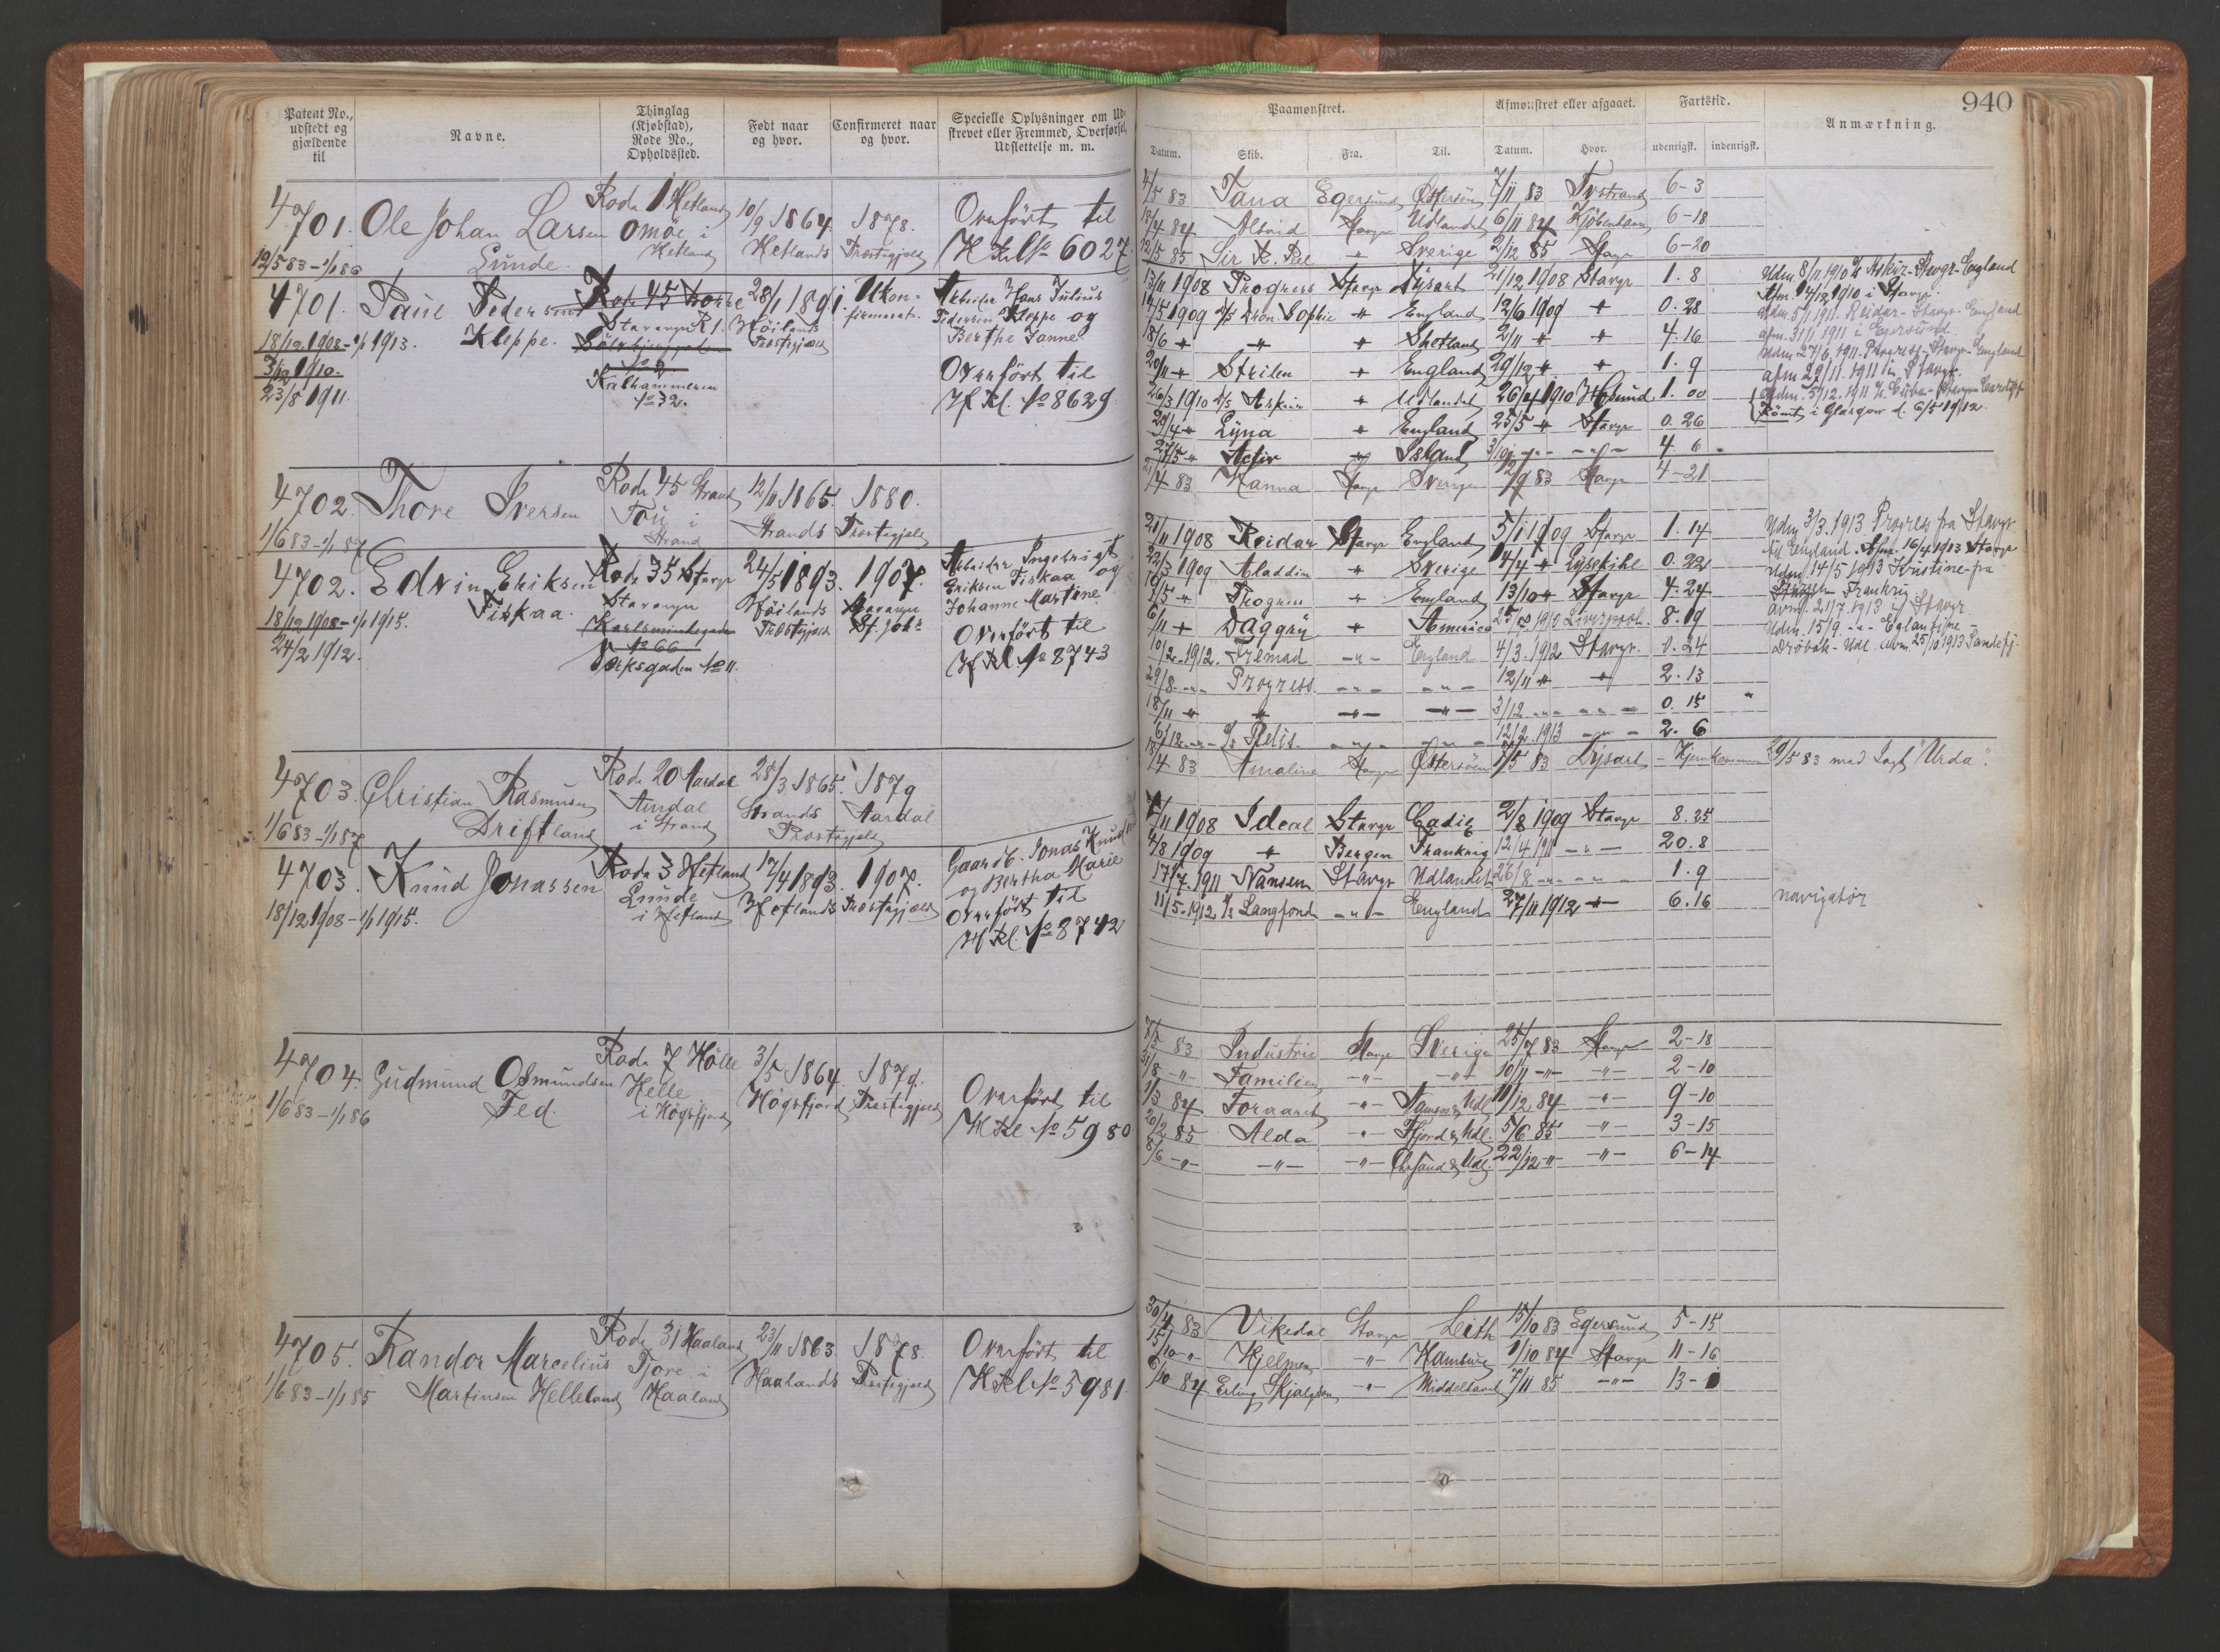 Patent No., udstedt og gjældende til
Navne.
Thinglag (Kjøbstad), Rode No., Opholdssted.
Født naar og hvor.
Confirmeret naar og hvor.
Specielle Oplysninger om Udskrevet eller Fremmed, Overførsel, Udslettelse m. m.
4701. Ole Johan Larsen Rode 1 Hetland 10/9 1864. 1878. Overført til
Lunde. Omöe i Hetland Hetlands Præstegjeld H Rl No 6027.
12/5 83 - 1/1 86
4701. Paul Pedersen Rode 45 28/1 1891. Ukonfirmeret. Arbeider Hans Julius
18/12 1908 - 1/1 1913. Kleppe. Stavanger R 1. Höilands Præstegjeld Pedersen Kleppe og
Berthe Janne
3/12 1910.
23/8 1911. Kalhammeren No 32. Overført til
H Rl. No 8629
4702. Thore Iversen Rode 45 Strand 12/11 1865. 1880.
1/6 83 - 1/1 87 Tou i Strand Strands Præstegjeld
4702. Edvin Eriksen Rode 35 Stavgr 24/5 1893. 1907. Arbeider Ingebrigt
Fiskaa. Stavanger Höilands Præstegjeld Stavanger St. Joh's Eriksen Fiskaa og
18/12 1908 - 1/1 1915. Johanne Martine
24/2 1912. No 66 Overført til
No 11. H Rl No 8743
4703. Christian Rasmusen Rode 20 Aardal 28/3 1865. 1879
1/6 83 - 1/1 87 Driftland i Strand Strands Præstegjeld Aardal
4703. Knud Jonassen Rode 3 Hetland 17/4 1893. 1907. Gaardb. Jonas Knud
18/12 1908 - 1/1 1915. Lunde i Hetland Hetlands Præstegjeld og Bertha Marie
Overført til
H Rl. No 8742
4704. Gudmund Osmundsen Rode 7 Hölle 3/5 1864. 1879.
1/6 83 - 1/1 86 Fed. Helle i Högsfjord Högsfjord Præstegjeld Overført til
H Rl No 5980
4705. Randor Marcelius Rode 31 Haaland 23/11 1863 1878. Overført til
1/6 83 - 1/1 85 Martinsen Helleland Tjore i Haaland Haalands Præstegjeld H Rl No 5981.
940
Paamønstret.
Afmønstret eller afgaaet.
Fartstid.
Anmærkning.
Datum. Skib. Fra. Til. Datum. Hvor. udenrigsk. indenrigsk.
4/5 83 Tana Egersund Østersöen 7/11 83 Tvstrand 6-3
18/4 84 Alsvid Stavgr Udlandet 6/11 84 Kjöbenhavn 6-18
12/5 85 Sir R. Peel " Sverige 2/12 85 Stavgr 6-20
13/11 1908 Progress Stavgr Dysart 21/12 1908 Stavgr 1. 8
14/5 1909 Dron. Sophie " England 12/6 1909 " 0. 28
18/6 " " " Shetland 2/11 " " 4. 16
20/11 " Strilen " England 29/12 " " 1. 9
26/3 1910 D/S Askur " Udlandet 26/4 1910 1. 00
29/4 " Lyna " England 25/5 " Stavgr 0. 26
27/5 " Island 3/10 4. 6
Udm 8/11 1910 Askur - Stavgr - England
Afm. 14/12 1910 i Stavgr.
Udm. 5/1 1911. Reidar - Stavgr - England
afm. 31/1 1911 i Egersund
Udm 27/6 1911. Progress - Stavgr - England
afm 29/11. 1911 i Stavgr.
Udm. 5/12. 1911
Römt i Glasgow d. 6/5 1912.
21/4 83 Hanna Stavgr Sverige 12/9 83 Stavgr 4-21
21/11 1908 Reidar Stavgr England 5/1 1909 Stavgr 1. 14
22/3 1909 Aladdin " Sverige 14/4 " Lysekihl 0. 22
19/5 " Progress " England 13/10 " Stavgr 4. 24
6/11 " Daggry " America 25/7 1910 Liverpool. 8. 19
10/2. 1912. Fremad -"- England 4/3. 1912 Stavgr. 0. 24
29/8. -"- Progress. -"- -"- 12/11 " " 2. 13
18/11 " " -"- -"- 3/12 -"- -"- 0. 15
6/12 -"- D/s Pelis. -"- -"- 12/2. 1913 -"- 2. 6
Udm 3/3. 1913 Progress fra Stavgr
til England. Afm. 16/4 1913 Stavgr
Udm. 14/5 1913 Kristine fra
Frankrig
avm. 21/7. 1913 i Stavgr.
Udm. 15/9. -"- Eglantine -
Dröbak - Udl. avm. 25/10 1913 Sandefj.
18/4 83 Amaline Stavgr Østersöen /5 83 Dysart - Hjemkommen 29/5 83 med Jagt "Urda".
5/11 1908 Ideal Stavgr Cadiz 2/8 1909 Stavgr 8. 25
4/8 1909 " Bergen Frankrig 12/4 1911 -"- 20. 8
17/7. 1911 Nansen Stavgr Udlandet 26/8 -"- -"- 1. 9
11/5 - 1912 D/s Langfond -"- England 27/11 1912 -"- 6. 16 navigatör
7/5 83 Industrie Stavgr Sverige 25/7 83 Stavgr 2-18
31/8 -"- Familien -"- -"- 10/11 -"- -"- 2-10
1/3 84 Foraaret -"- Namsos & Udl 11/12 84 -"- 9-10
20/2 85 Alda " Fjord & Udl. 5/6 85 -"- 3-15
8/6 -"- -"- -"- Chrsand & Udl. 22/12 -"- -"- 6-14
30/4 83 Vikedal Stavgr Leith 15/10 83 Egersund 5-15
15/10 -"- Hjelmen -"- Hamburg 1/10 84 Stavgr 11-16
6/10 84 Erling Skjalgson -"- Middelhavet 7/11 85 -"- 13-1